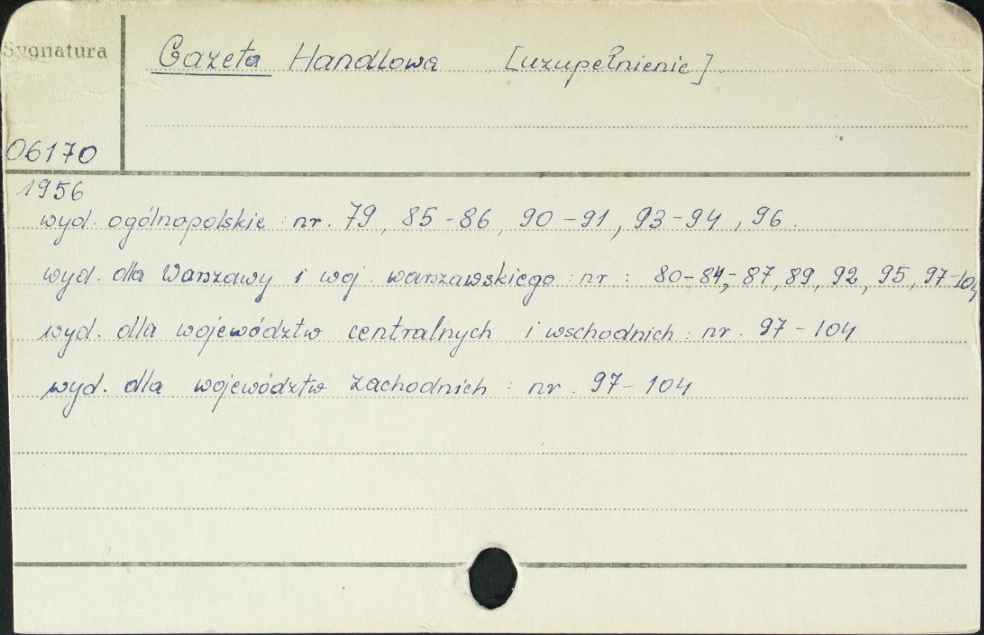 Sygnatura
Gazeta Handlowa [uzupełnienie]
06170
1956
wyd. ogólnopolskie : nr. 79, 85-86, 90-91, 93-94, 96.
wyd. dla Warszawy i woj. warszawskiego : nr : 80-84,-87, 89, 92, 95, 97-104
wyd. dla województw centralnych i wschodnich : nr. 97-104
wyd. dla województw zachodnich : nr. 97-104